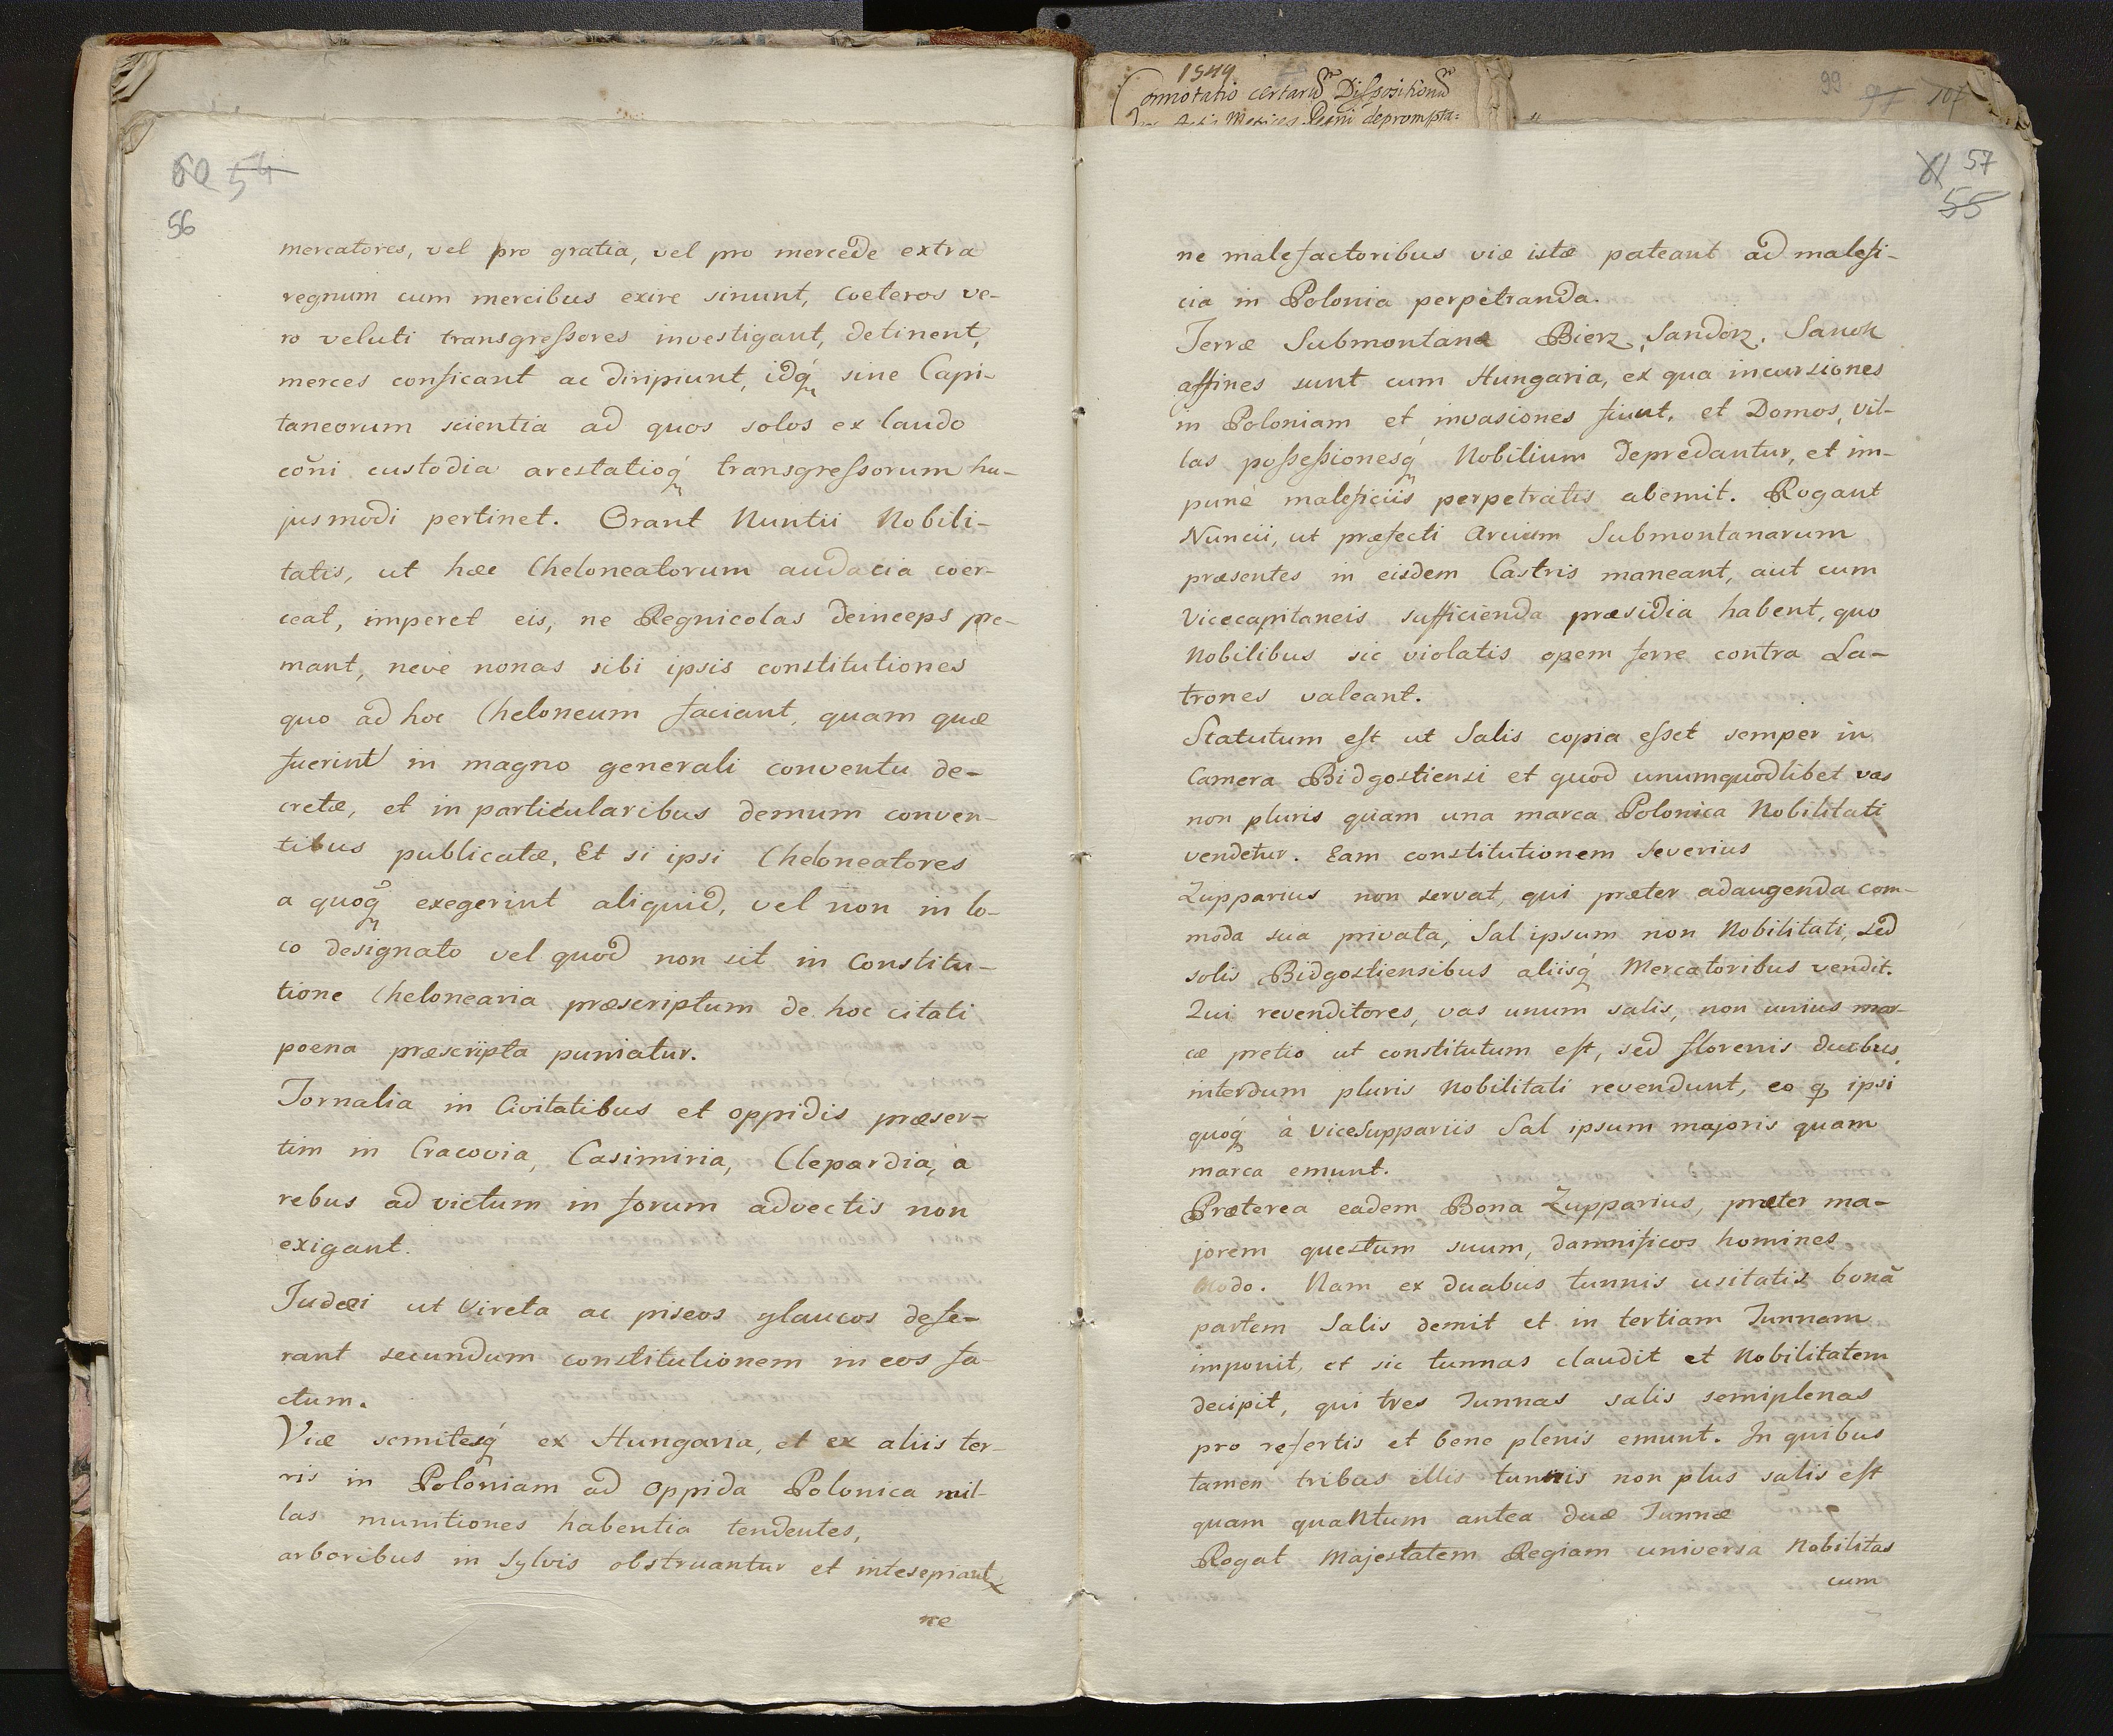 60 54
56
mercatores, vel pro gratia, vel pro mercede extra
regnum cum mercibus exire sinunt, coeteros ve-
ro veluti transgreſsores investigant, detinent,
merces conficant ac diripiunt, idq́ sine Capi-
taneorum scientia ad quos solos ex laudo
cōni custodia arestatioq́ transgreſsorum hu-
jusmodi pertinet. Orant Nuntii Nobili-
tatis, ut hæc Cheloneatorum audacia coer-
ceat, imperet eis, ne Regnicolas deinceps pre-
mant, neve nonas sibi ipsis constitutiones
quo ad hoc Cheloneum faciant, quam quæ
fuerint in magno generali conventu de-
cretæ, et in particularibus demum conven-
tibus publicatæ, Et si ipsi Cheloneatores
a quoq́ exegerint aliquid, vel non in lo-
co designato vel quod non sit in Constitu-
tione Chelonearia præscriptum de hoc citati
poena præscripta puniatur.
Tornalia in Civitatibus et oppidis præser-
tim in Cracovia, Casimiria, Clepardia, à
rebus ad victum in forum advectis non
exigant.
Judæi ut vireta ac piseos glaucos defe-
rant secundum constitutionem in eos fa-
ctum.
Viæ semitesq́ ex Hungaria, et ex aliis ter-
ris in Poloniam ad oppida Polonica nul-
las munitiones habentia tendentes,
arboribus in sylvis obstruantur et intesepiant
ne
1549
Connotatio certarū Dispositionū
Actis Metrices Regni deprompta=
99 97 107
61 57
55
ne malefactoribus viæ istæ pateant ad malefi-
cia in Polonia perpetranda.
Terræ Submontanæ Bierz, Sandorz, Sanok
affines sunt cum Hungaria, ex qua incursiones
in Poloniam et invasiones fiunt, et Domos, vil-
las poſseſsionesq́ Nobilium depredantur, et im-
punè maleficiis perpetratis abemit. Rogant
Nuncii, ut præfecti Arcium Submontanarum
præsentes in eisdem Castris maneant, aut cum
Vicecapitaneis sufficienda præsidia habent, quo
Nobilibus sic violatis opem ferre contra La-
trones valeant.
Statutum eſt ut Salis copia eſset semper in
Camera Bidgostiensi et quod unumquodlibet vas
non pluris quam una marca Polonica Nobilitati
vendetur. Eam constitutionem Severius
Zupparius non servat, qui præter adaugenda com-
moda sua privata, Sal ipsum non Nobilitati, sed
solis Bidgostiensibus aliisq́ Mercatoribus vendit.
Qui revenditores, vas unum salis, non unius mar-
cæ pretio ut constitutum eſt, sed florenis duobus,
interdum pluris Nobilitati revendunt, eo q ipsi
quoq́ à viceSuppariis Sal ipsum majoris quam
marca emunt.
Præterea eadem Bona Zupparius, præter ma-
jorem questum suum, damnificos homines
modo. Nam ex duabus tunnis usitatis bonā
partem Salis demit et in tertiam Tunnam
imponit, et sic tunnas claudit et Nobilitatem
decipit, qui tres Tunnas salis semiplenas
pro refertis et bene plenis emunt. In quibus
tamen tribus illis tunnis non plus salis eſt
quam quantum antea duæ Tunnæ
Rogat Majestatem Regiam universa Nobilitas
cum